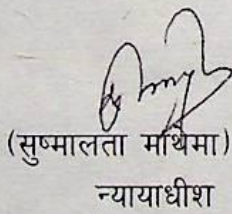 (सुष्मालता माथेमा)
न्यायाधीश